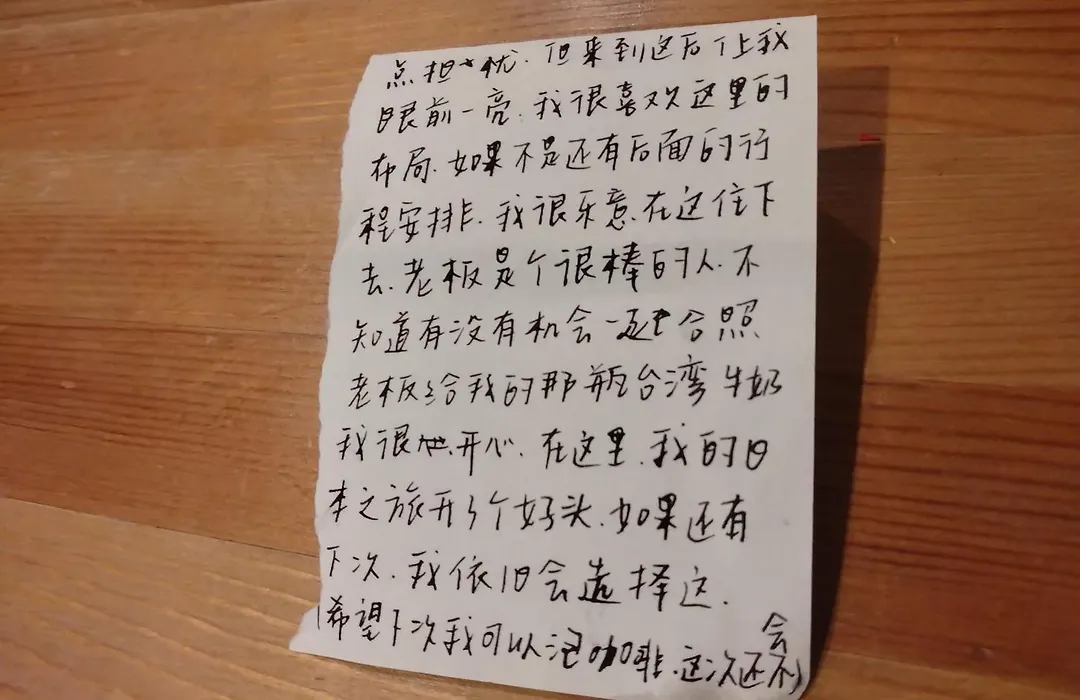 点担忧.但来到这后让我
眼前一亮.我很喜欢这里的
布局.如果不是还有后面的行
程安排.我很乐意在这住下
去.老板是个很棒的人.不
知道有没有机会一起合照
老板给我的那瓶台湾牛奶
我很开心.在这里.我的日
本之旅开了个好头.如果还有
下次.我依旧会选择这.
(希望下次我可以泡咖啡.这次还不会)